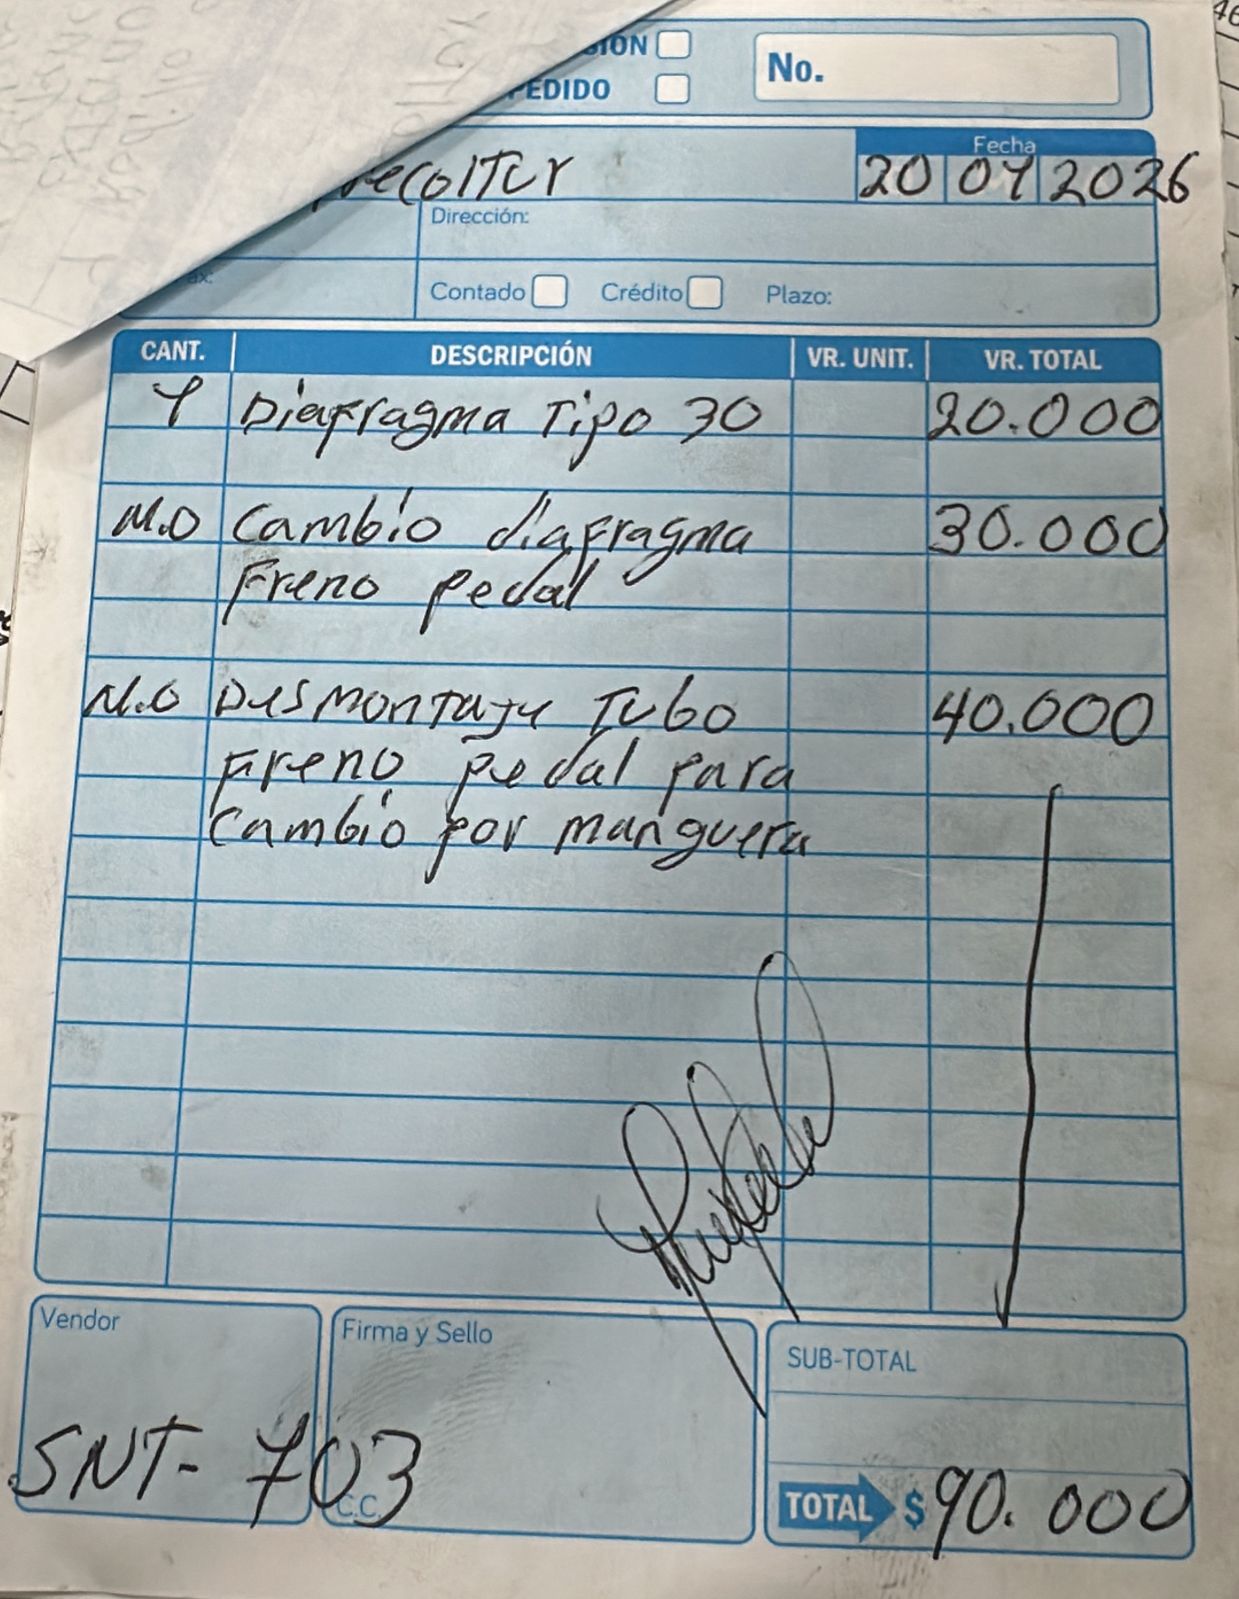 No.
EDIDO
Fecha
20 04 2026
Dirección:
Contado Crédito Plazo:
CANT. DESCRIPCIÓN VR. UNIT. VR. TOTAL
1 Diafragma Tipo 30 20.000
M.O Cambio diafragma 30.000
Freno pedal
M.O Desmontaje Tubo 40.000
Freno pedal para
Cambio por manguera
Vendor
Firma y Sello
SUB-TOTAL
SNT-703
C.C.
TOTAL $ 90.000